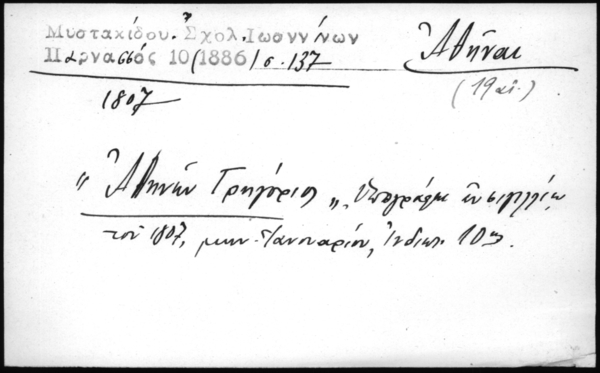 Μυστακίδου. Σχολ. Ιωαννίνων
Παρνασσός 10 (1886) σ. 137
Ἀθῆναι
(19 αἰ.)
1807
"Ἀθηνῶν Γρηγόριος" ὑπογράφει ἐν σιγιλλίῳ
τοῦ 1807, μην. Ἰανουαρίου, Ἰνδικτ. 10ης.